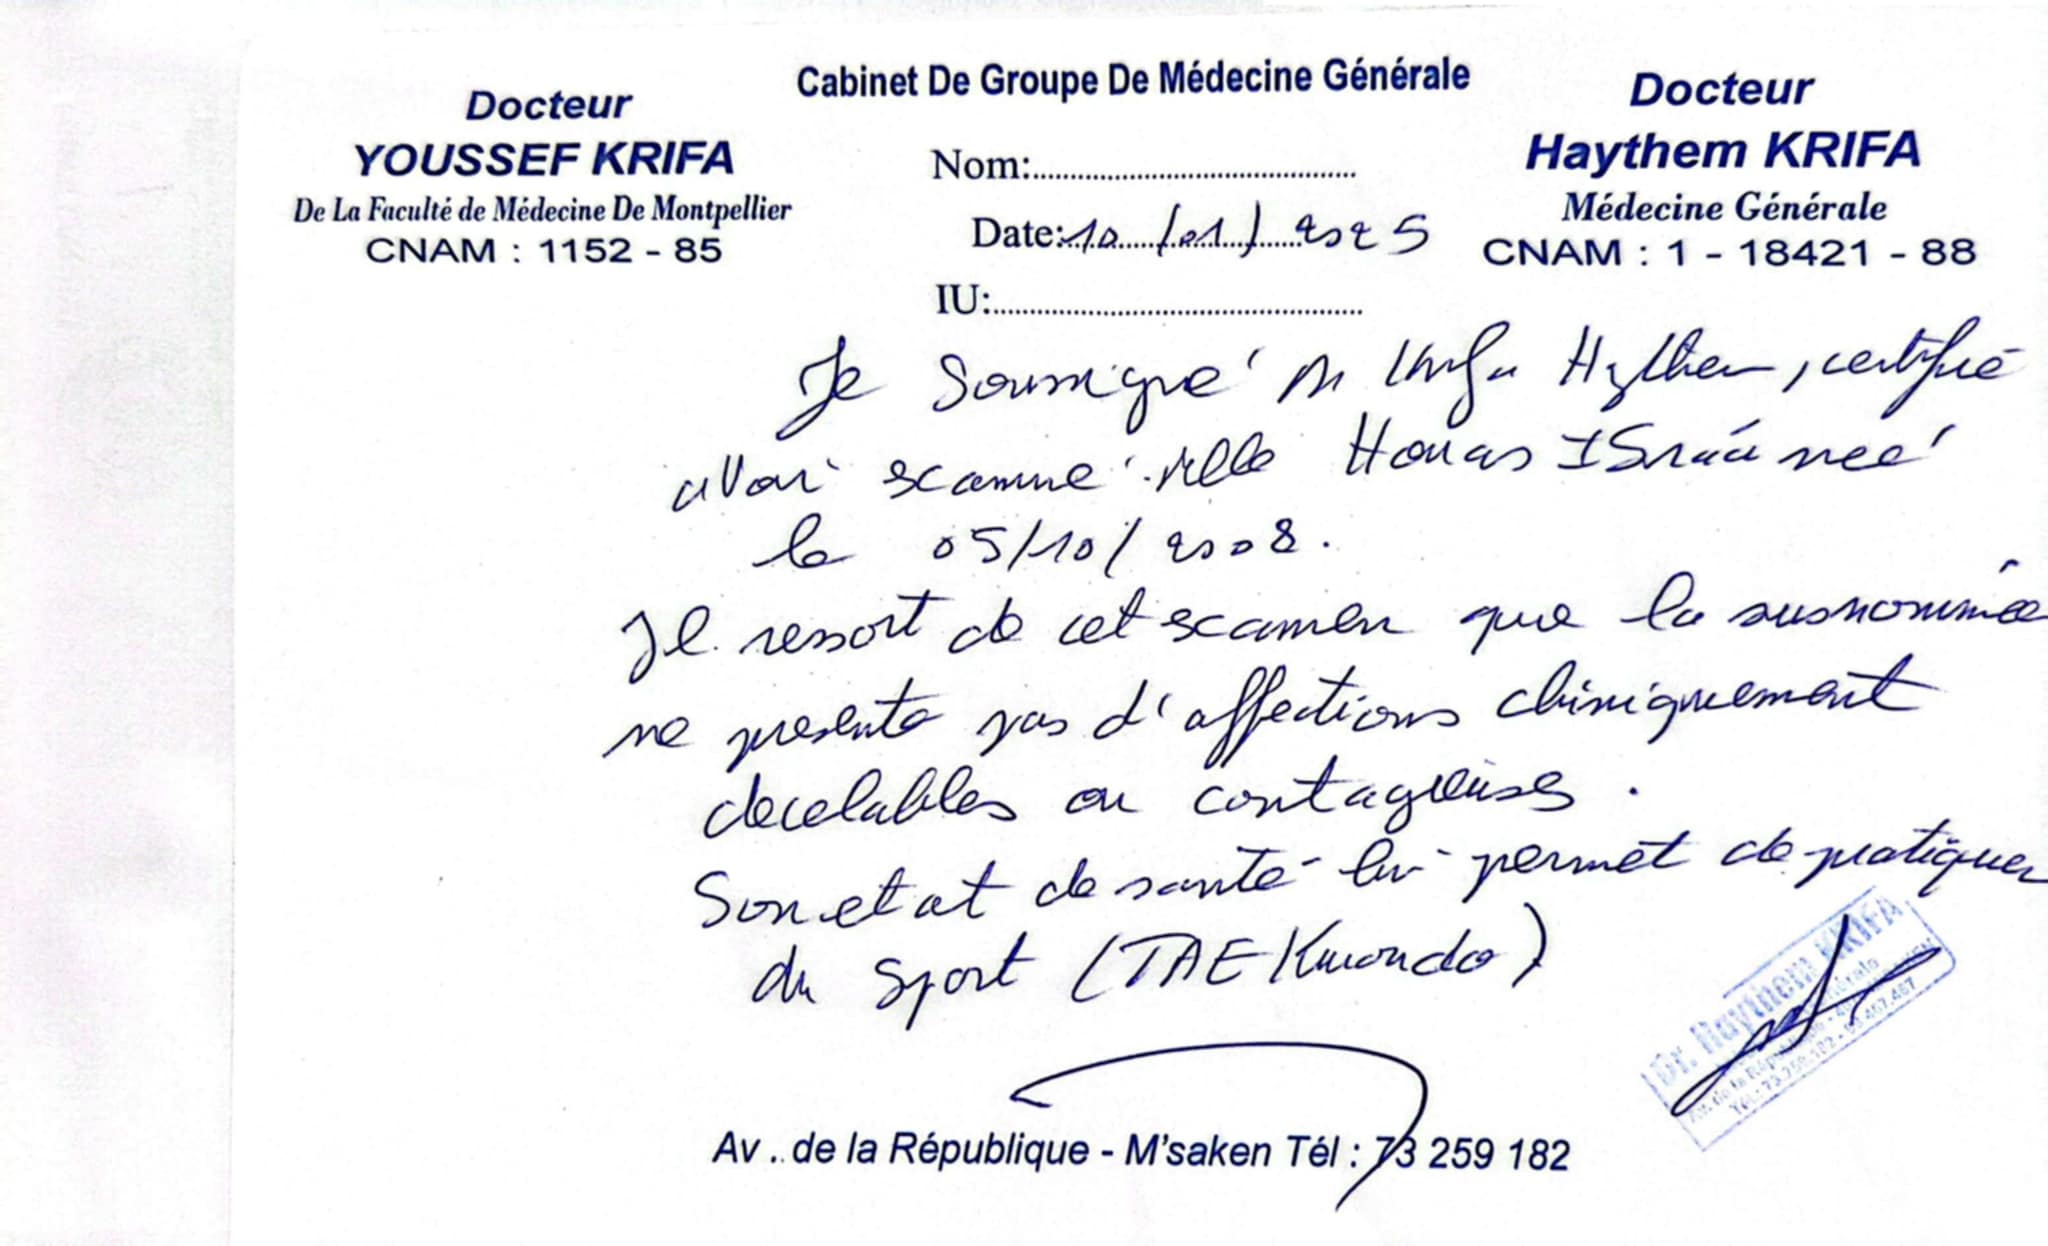 Cabinet De Groupe De Médecine Générale
Docteur
YOUSSEF KRIFA
De La Faculté de Médecine De Montpellier
CNAM : 1152 - 85
Nom:
Date: 10/01/2025
IU:
Docteur
Haythem KRIFA
Médecine Générale
CNAM : 1 - 18421 - 88
Je soussigné Dr Krifa Hythem, certifié
avoir examiné Melle Houas Israa née
le 05/10/2008.
Il ressort de cet examen que la susnommée
ne presente pas d'affections cliniquement
decelables ou contagieuses.
Son etat de santé lui permet de pratiquer
du sport (TAEKwondo)
Dr. Haythem KRIFA
Av. de la République
Tél.: 73.259.182
Av . de la République - M'saken Tél : 73 259 182